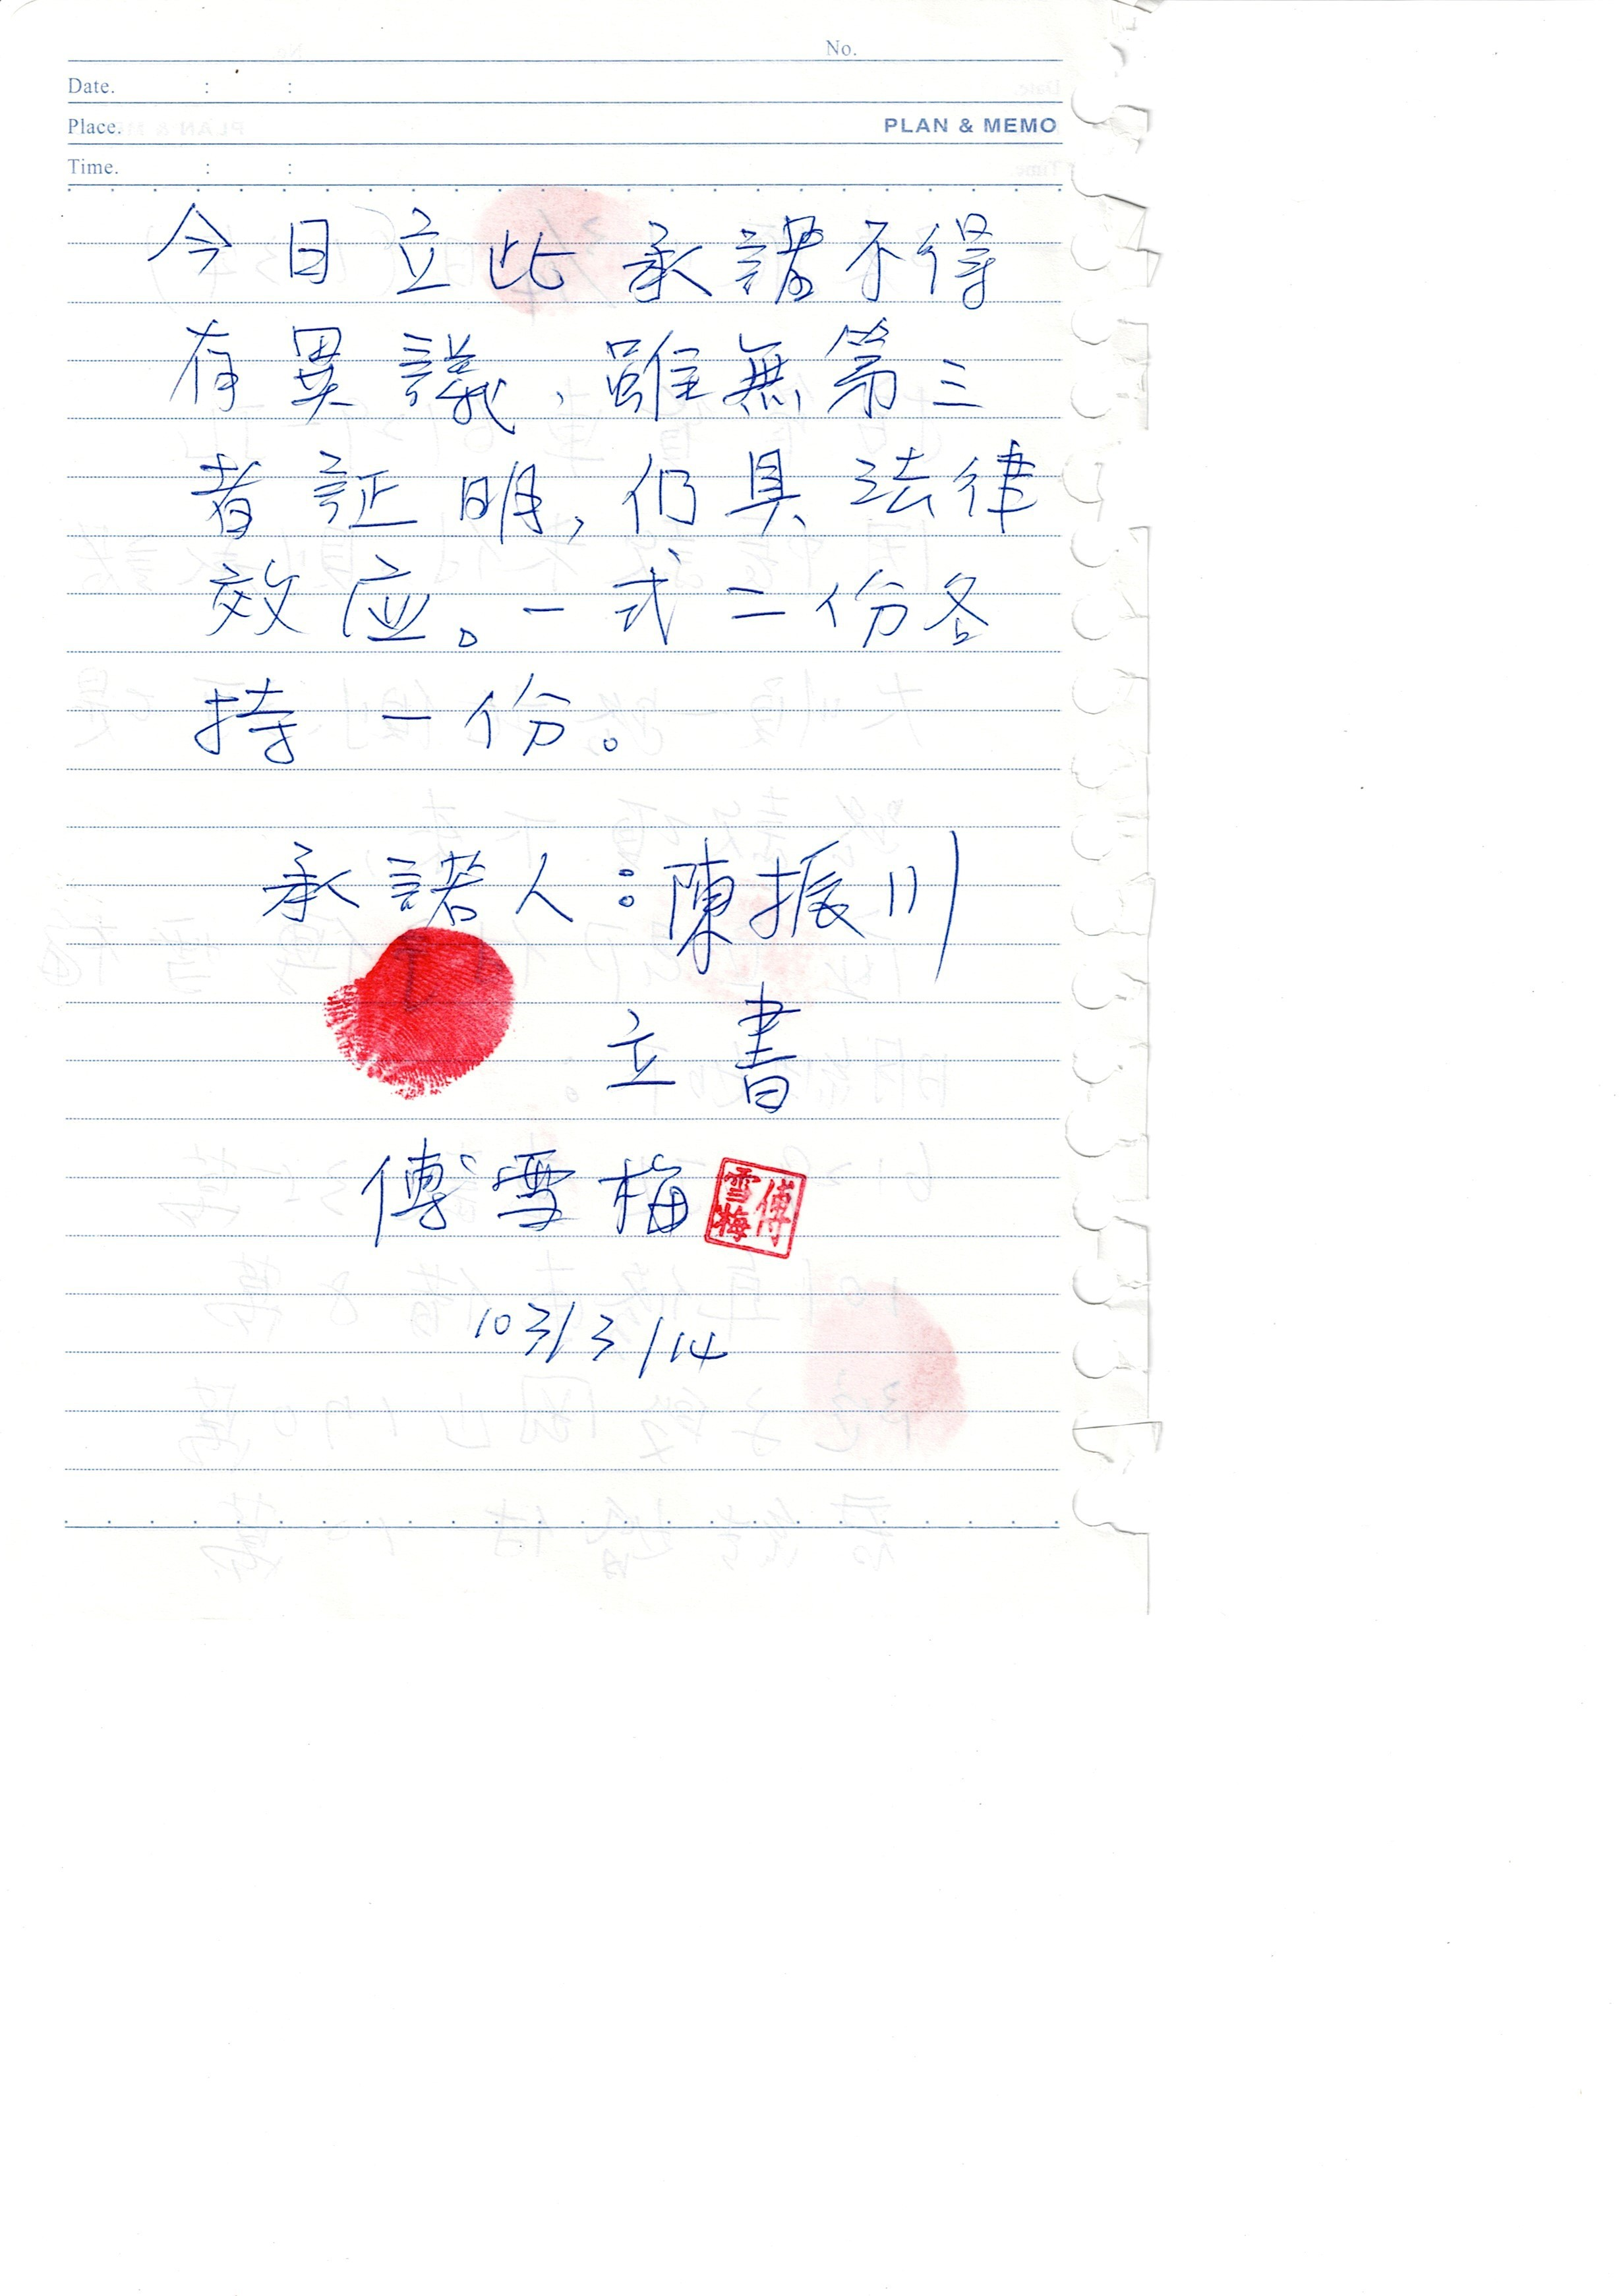 No.
Date. : :
Place. PLAN & MEMO
Time. : :
今日立此承諾不得
有異議、雖無第三
者証明,仍具法律
效应。一式二份各
持一份。
承諾人:陳振川
立書
傅雪梅 傅雪梅
103/3/14